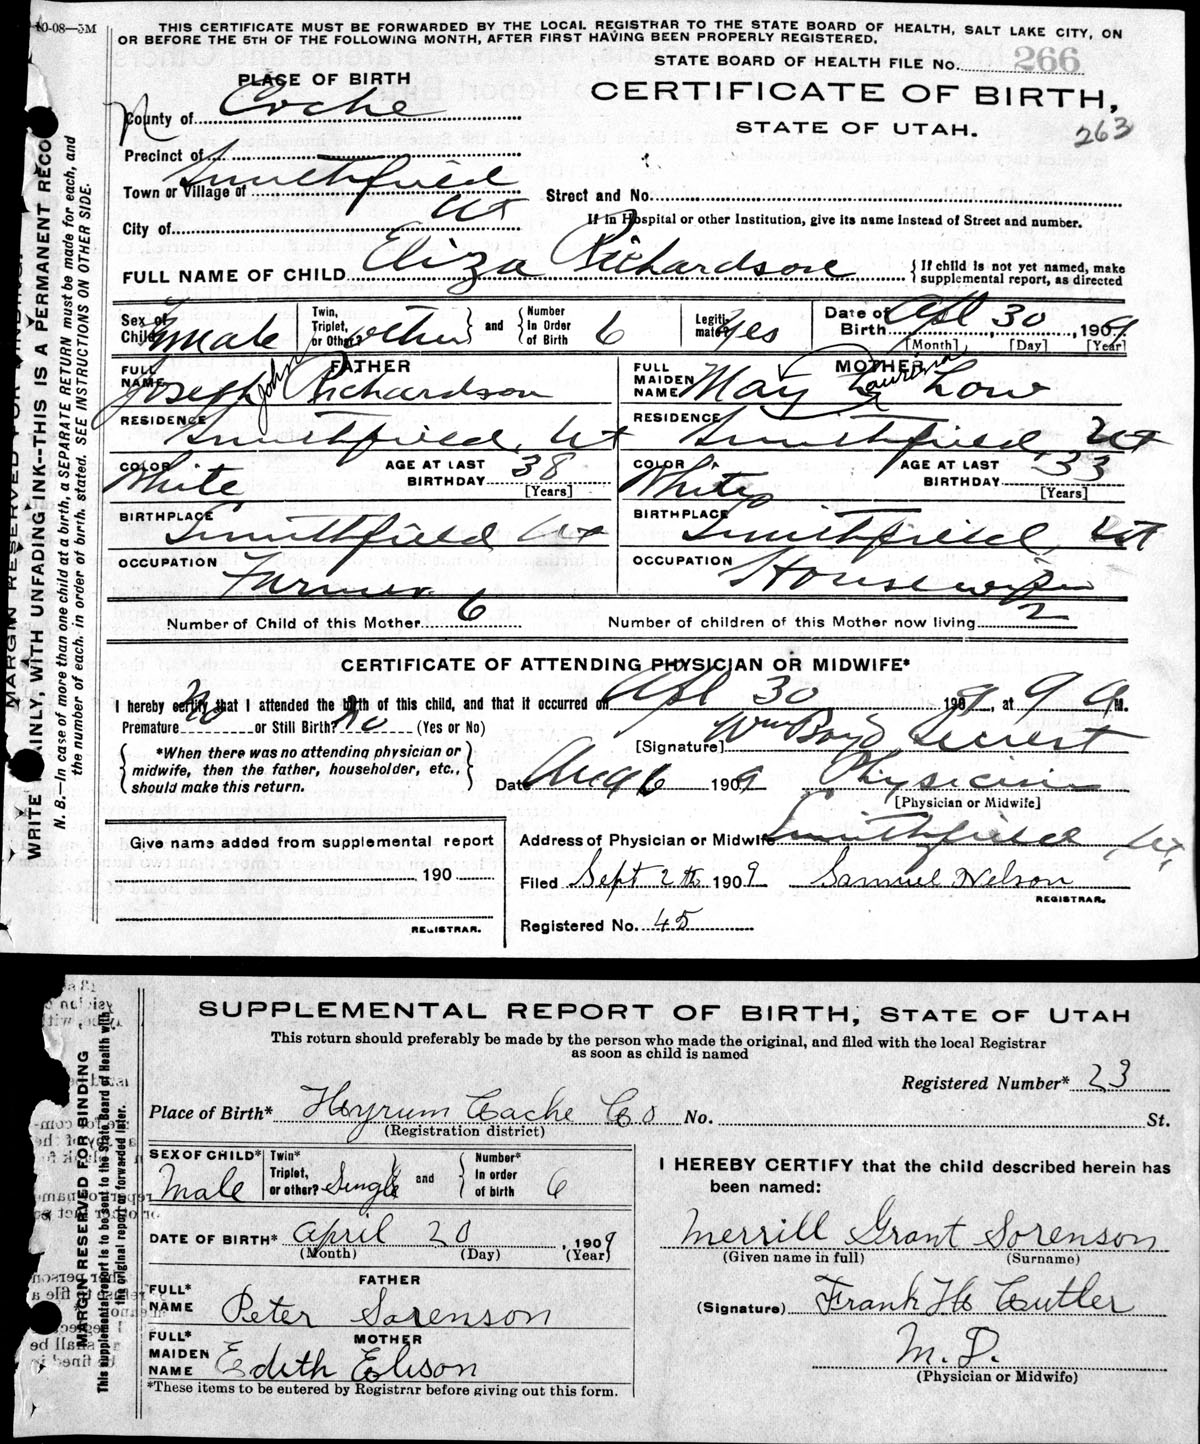 10-08—3M
THIS CERTIFICATE MUST BE FORWARDED BY THE LOCAL REGISTRAR TO THE STATE BOARD OF HEALTH, SALT LAKE CITY, ON
OR BEFORE THE 5TH OF THE FOLLOWING MONTH, AFTER FIRST HAVING BEEN PROPERLY REGISTERED.
STATE BOARD OF HEALTH FILE No. 266
PLACE OF BIRTH
CERTIFICATE OF BIRTH,
County of Cache
STATE OF UTAH.
263
Precinct of
Town or Village of Smithfield
Street and No.
City of Ut
If in Hospital or other Institution, give its name instead of Street and number.
FULL NAME OF CHILD Eliza Richardson { If child is not yet named, make
supplemental report, as directed
Sex of Child Female Twin, Triplet, or Other? other and Number In Order of Birth 6 Legiti mate? Yes Date of Birth Apl 30, 1909
[Month] [Day] [Year]
FATHER MOTHER
FULL NAME Joseph John Richardson FULL MAIDEN NAME May Laurina Low
RESIDENCE Smithfield, Ut RESIDENCE Smithfield Ut
COLOR White AGE AT LAST BIRTHDAY 38 [Years] COLOR White AGE AT LAST BIRTHDAY 33 [Years]
BIRTHPLACE Smithfield Ut BIRTHPLACE Smithfield, Ut
OCCUPATION Farmer OCCUPATION Housewife
Number of Child of this Mother 6 Number of children of this Mother now living 2
CERTIFICATE OF ATTENDING PHYSICIAN OR MIDWIFE*
I hereby certify that I attended the birth of this child, and that it occurred on Apl 30 1909, at 9 A M.
Premature? No or Still Birth? No (Yes or No)
[Signature] Wm Boyd Secrist
{ *When there was no attending physician or
midwife, then the father, householder, etc.,
should make this return. }
Date Aug 6 1909 Physician
[Physician or Midwife]
Give name added from supplemental report
Address of Physician or Midwife Smithfield, Ut,
190
Filed Sept 2th 1909 Samuel Nelson
REGISTRAR.
REGISTRAR.
Registered No. 45
WRITE PLAINLY, WITH UNFADING INK--THIS IS A PERMANENT RECO
N. B.—In case of more than one child at a birth, a SEPARATE RETURN must be made for each, and
the number of each, in order of birth, stated. SEE INSTRUCTIONS ON OTHER SIDE.
SUPPLEMENTAL REPORT OF BIRTH, STATE OF UTAH
This return should preferably be made by the person who made the original, and filed with the local Registrar
as soon as child is named
Registered Number* 23
Place of Birth* Hyrum Cache Co No. St.
(Registration district)
SEX OF CHILD* Male Twin* Triplet, or other? Single and Number* In order of birth 6
DATE OF BIRTH* April 20, 1909
(Month) (Day) (Year)
FATHER
FULL* NAME Peter Sorenson
MOTHER
FULL* MAIDEN NAME Edith Elison
*These items to be entered by Registrar before giving out this form.
I HEREBY CERTIFY that the child described herein has
been named:
Merrill Grant Sorenson
(Given name in full) (Surname)
(Signature) Frank H Cutler
M. D.
(Physician or Midwife)
MARGIN RESERVED FOR BINDING
This supplemental report is to be sent to the State Board of Health with
the original report or forwarded later.